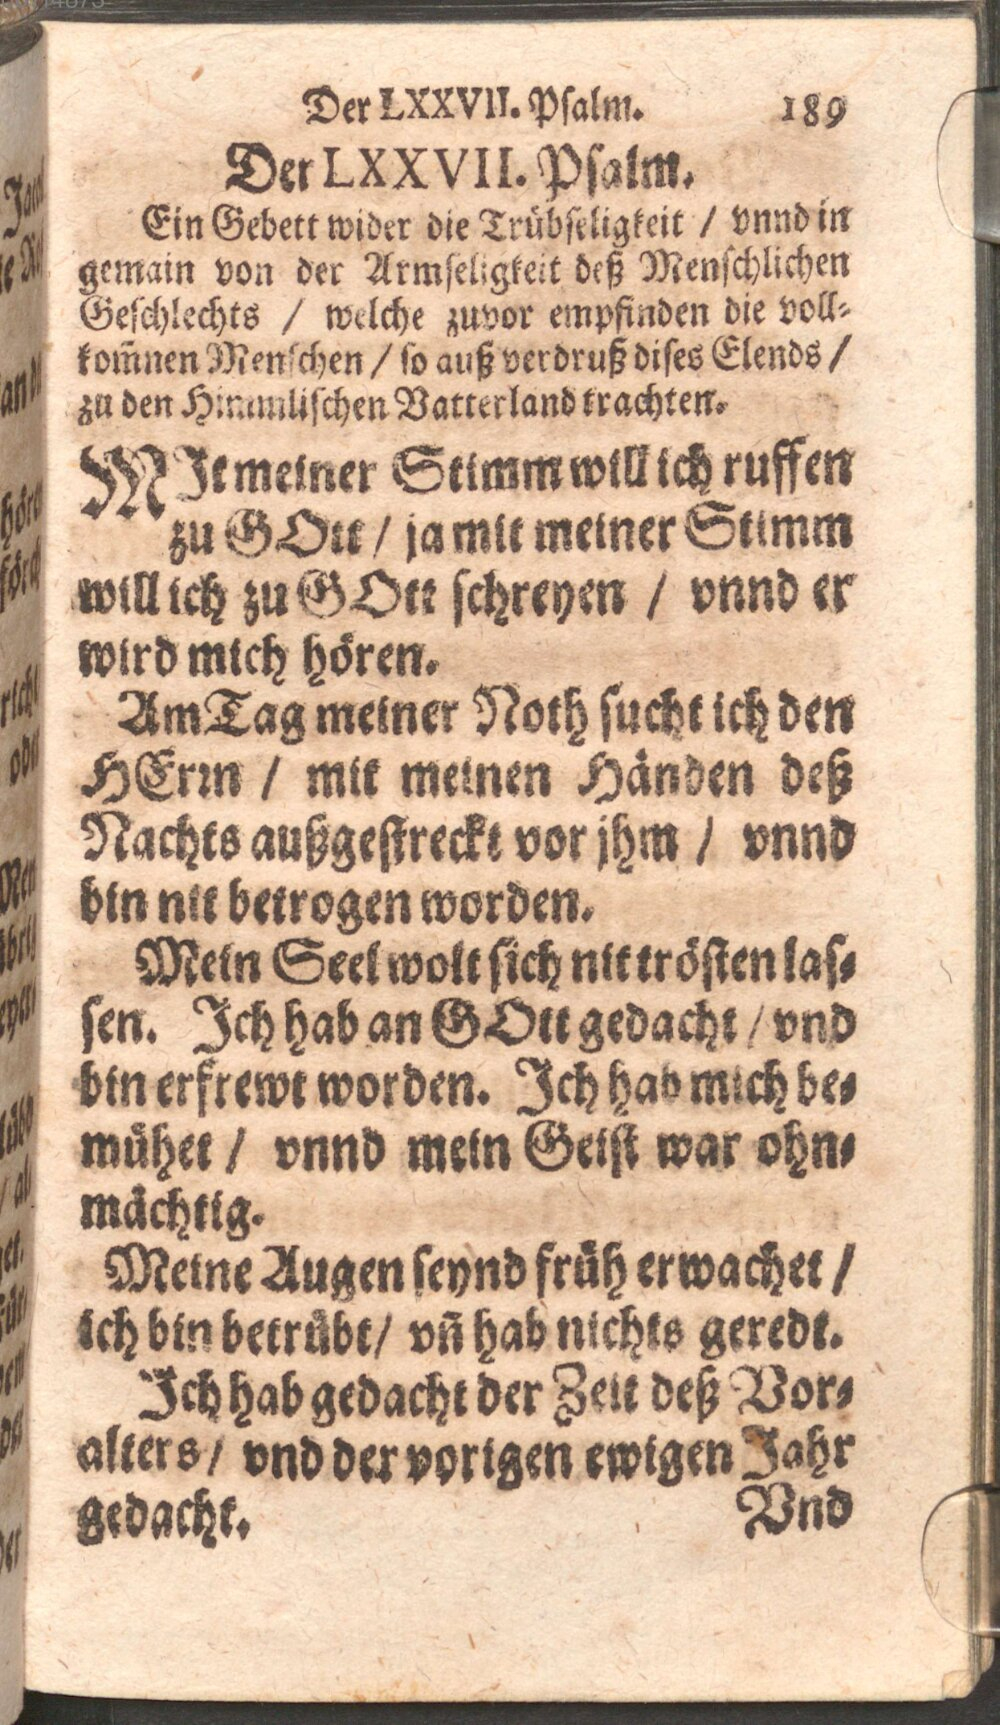 Der LXXVII. Psalm. 189
Der LXXVII. Psalm.
Ein Gebett wider die Trübseligkeit / vnnd in
gemain von der Armseligkeit deß Menschlichen
Geschlechts / welche zuvor empfinden die voll-
kom̃nen Menschen / so auß verdruß dises Elends /
zu den Himmlischen Vatterland trachten.
MIt meiner Stimm will ich ruffen
zu GOtt / ja mit meiner Stimm
will ich zu GOtt schreyen / vnnd er
wird mich hören.
Am Tag meiner Noth sucht ich den
HErrn / mit meinen Händen deß
Nachts außgestreckt vor jhm / vnnd
bin nit betrogen worden.
Mein Seel wolt sich nit trösten las-
sen. Ich hab an GOtt gedacht / vnd
bin erfrewt worden. Ich hab mich be-
mühet / vnnd mein Geist war ohn-
mächtig.
Meine Augen seynd früh erwachet /
ich bin betrübt / vñ hab nichts geredt.
Ich hab gedacht der Zeit deß Vor-
alters / vnd der vorigen ewigen Jahr
gedacht. Vnd